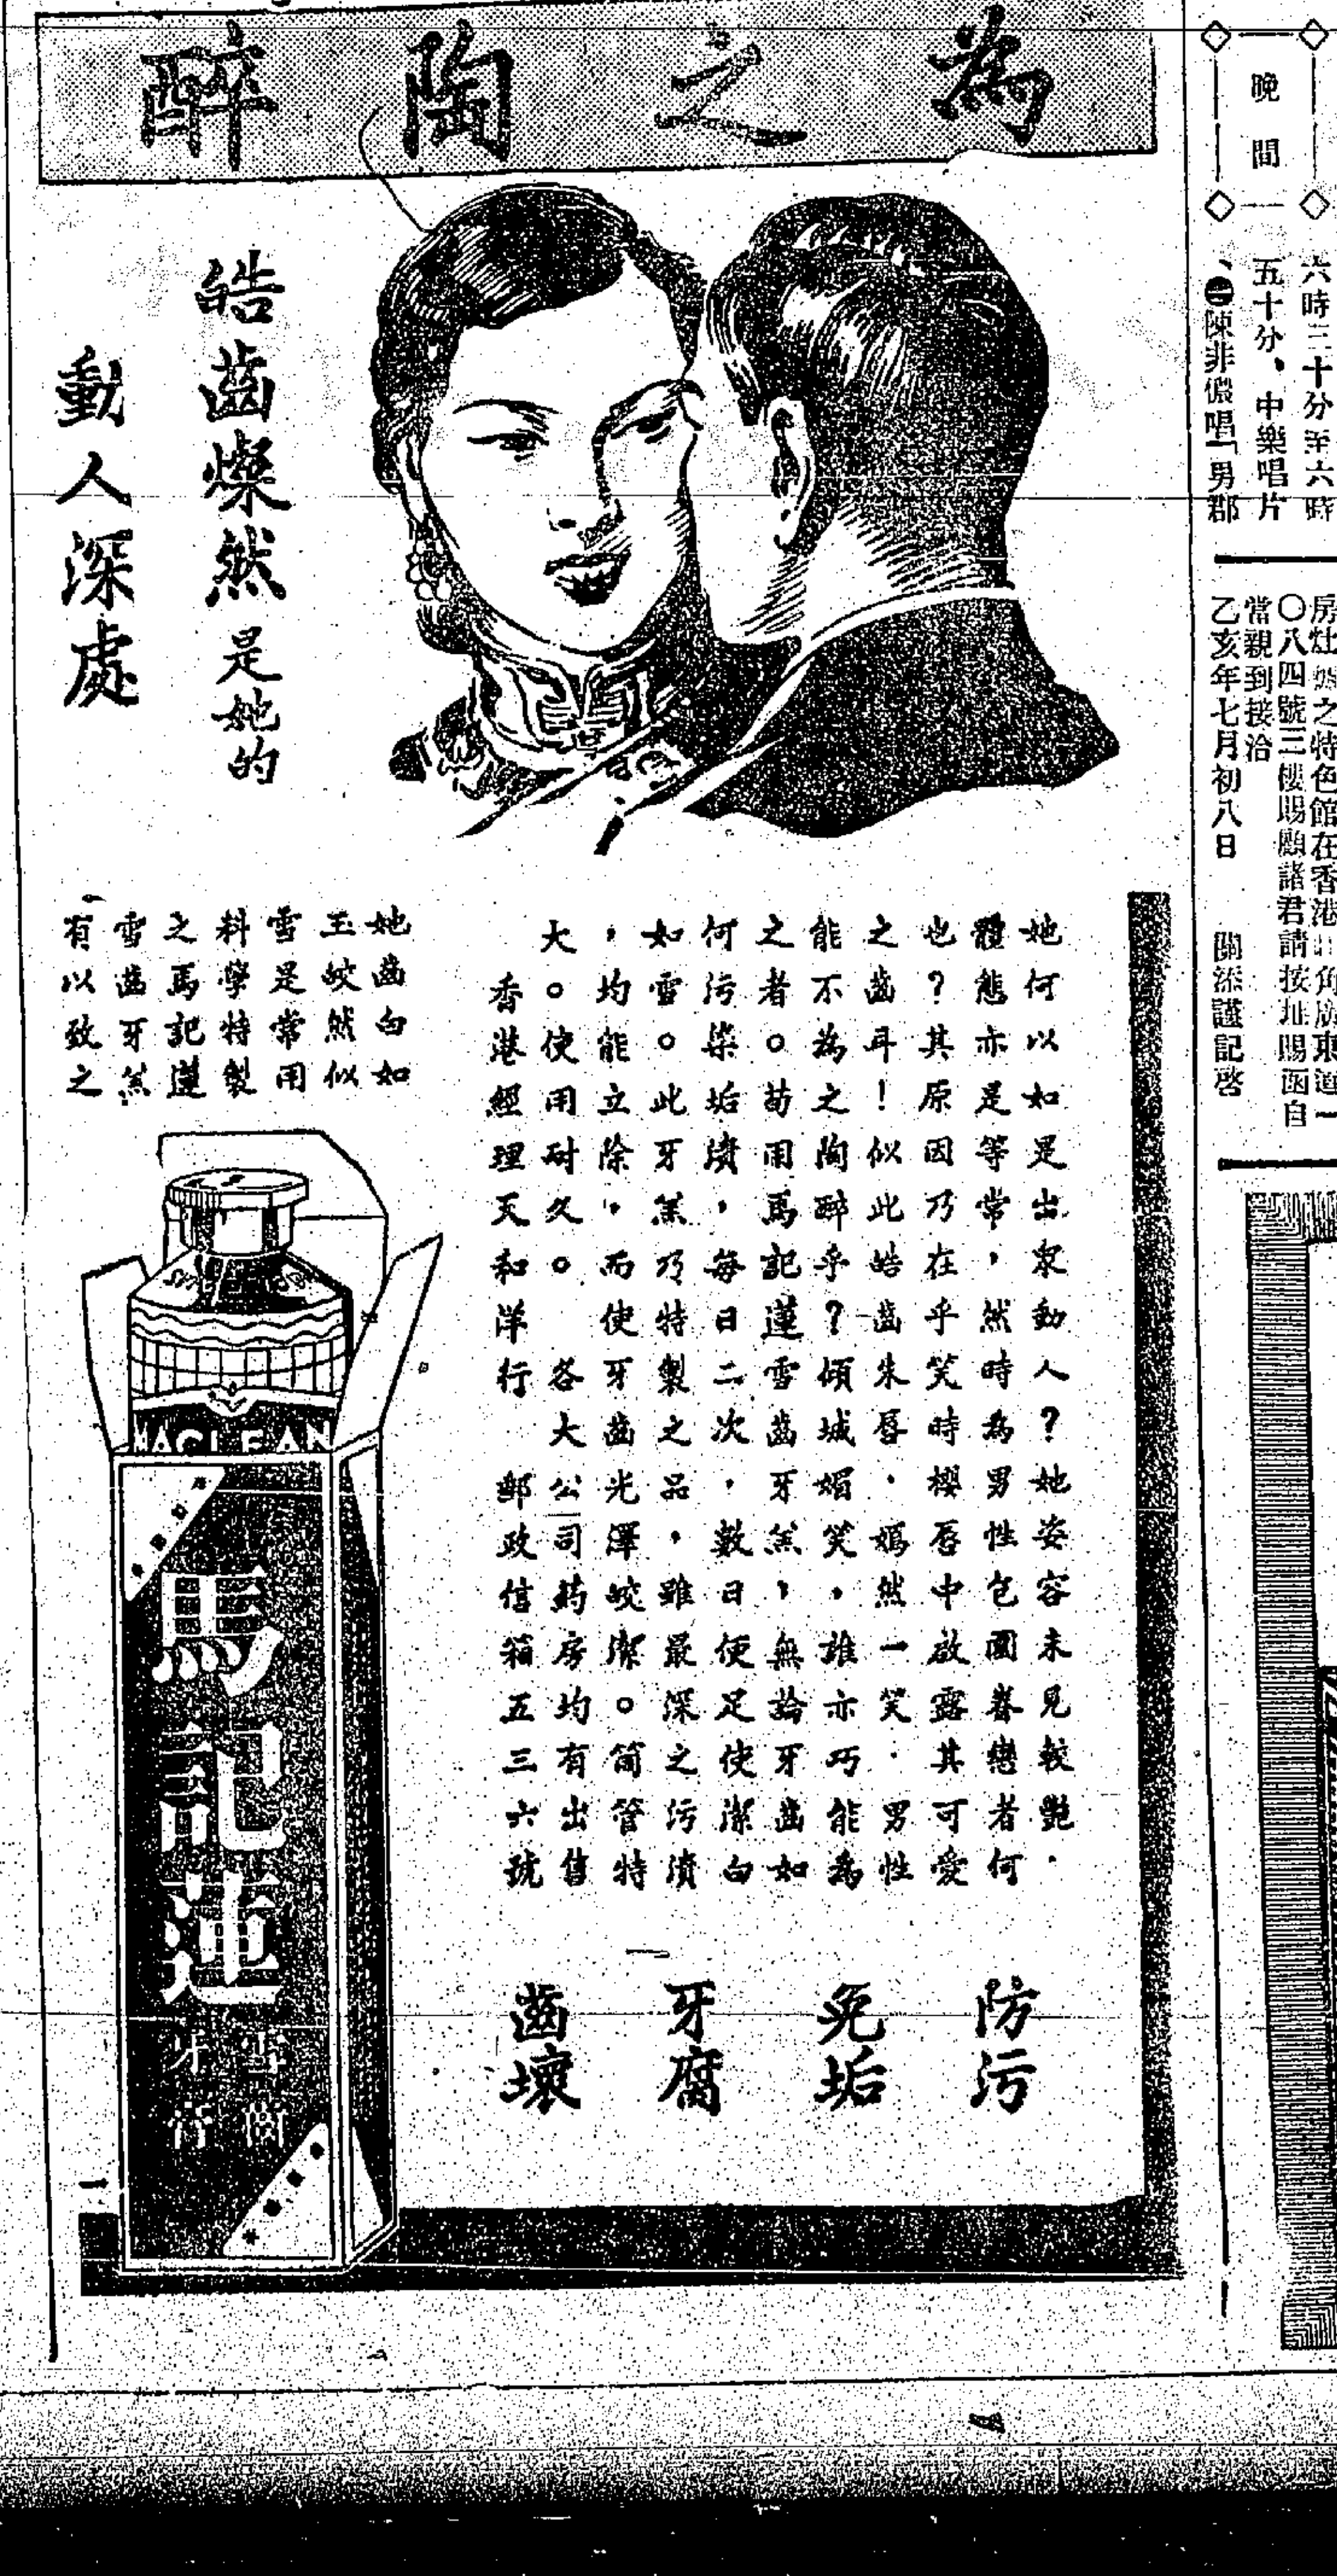 為之陶醉
皓齒燦然是她的
動人深處
她何以如是出衆動人？她姿容未見較艷．
體態亦是等常，然時為男性包圍眷戀者何
也？其原因乃在乎笑時櫻唇中啟露其可愛
之齒耳！似此皓齒朱唇．嫣然一笑．男性
能不為之陶醉乎？傾城媚笑，誰亦巧能為
之者。苟用馬記蓮雪齒牙羔，無論牙齒如
何污染垢漬，每日二次，數日便足使潔白
如雪。此牙羔乃特製之品，雖最深之污漬
，均能立除，而使牙齒光澤皎潔。筒管特
大。使用耐久。　各大公司葯房均有出售
香港經理天和洋行　郵政信箱五三六號
她齒白如
玉皎然似
雪是常用
科學特製
之馬記蓮
雪齒牙羔
有以致之
MACLEAN
馬記蓮
防污
免垢
牙腐
齒壞
晚間
六時三十分至六時
五十分、中樂唱片
、㊀陳非儂唱「男郡
房灶之特色館在香港角廣東道一
〇八四號三樓賜顧諸君請按址賜函自
常親到接洽
乙亥年七月初八日　關添謹記啓